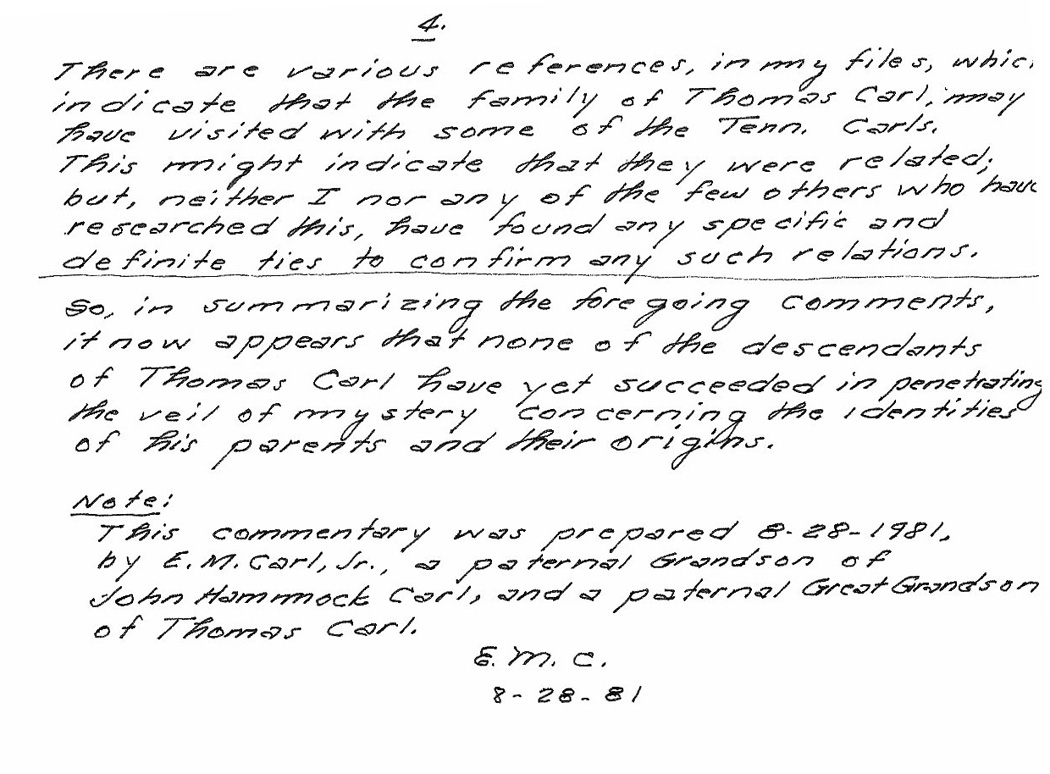 4.
There are various references, in my files, whic
indicate that the family of Thomas Carl, may
have visited with some of the Tenn. Carls.
This might indicate that they were related;
but, neither I nor any of the few others who have
researched this, have found any specific and
definite ties to confirm any such relations.
So, in summarizing the foregoing comments,
it now appears that none of the descendants
of Thomas Carl have yet succeeded in penetrating
the veil of mystery concerning the identities
of his parents and their origins.
Note:
This commentary was prepared 8-28-1981,
by E.M. Carl, Jr., a paternal Grandson of
John Hammock Carl, and a paternal Great Grandson
of Thomas Carl.
E. M. C.
8-28-81